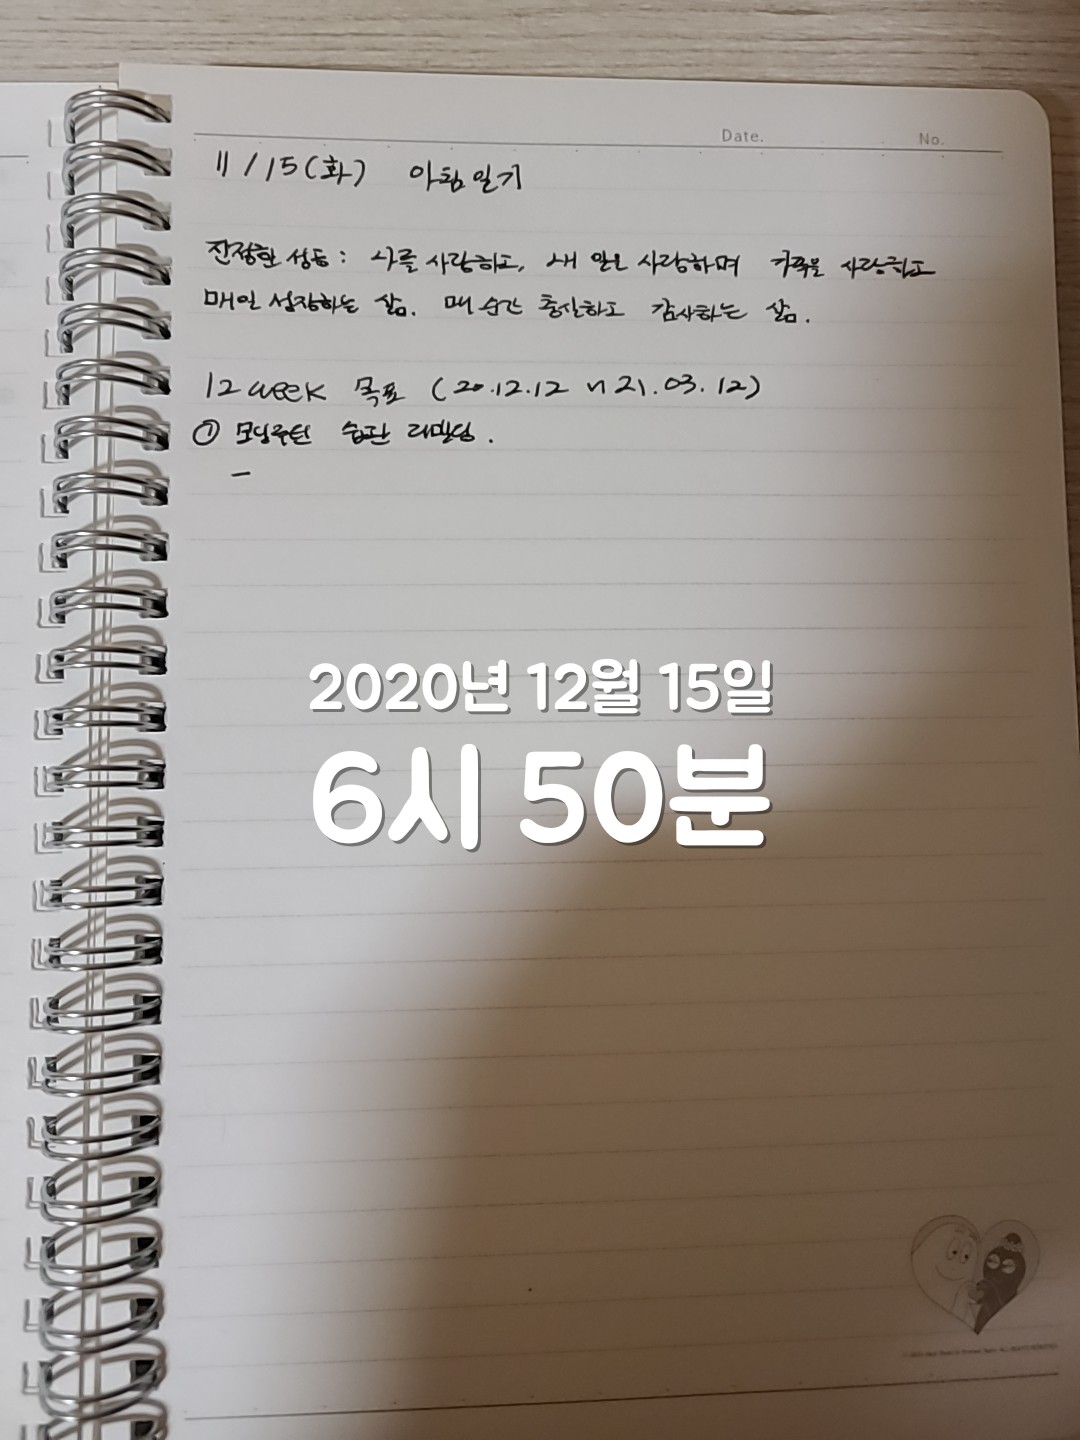 Date. No.
11/15(화) 아침 일기
진정한 성공: 나를 사랑하고, 내 일을 사랑하며 가족을 사랑하고
매일 성장하는 삶. 매 순간 충실하고 감사하는 삶.
12 week 목표 (20.12.12 ~ 21.03.12)
① 모닝루틴 습관 리빌딩.
-
2020년 12월 15일
6시 50분